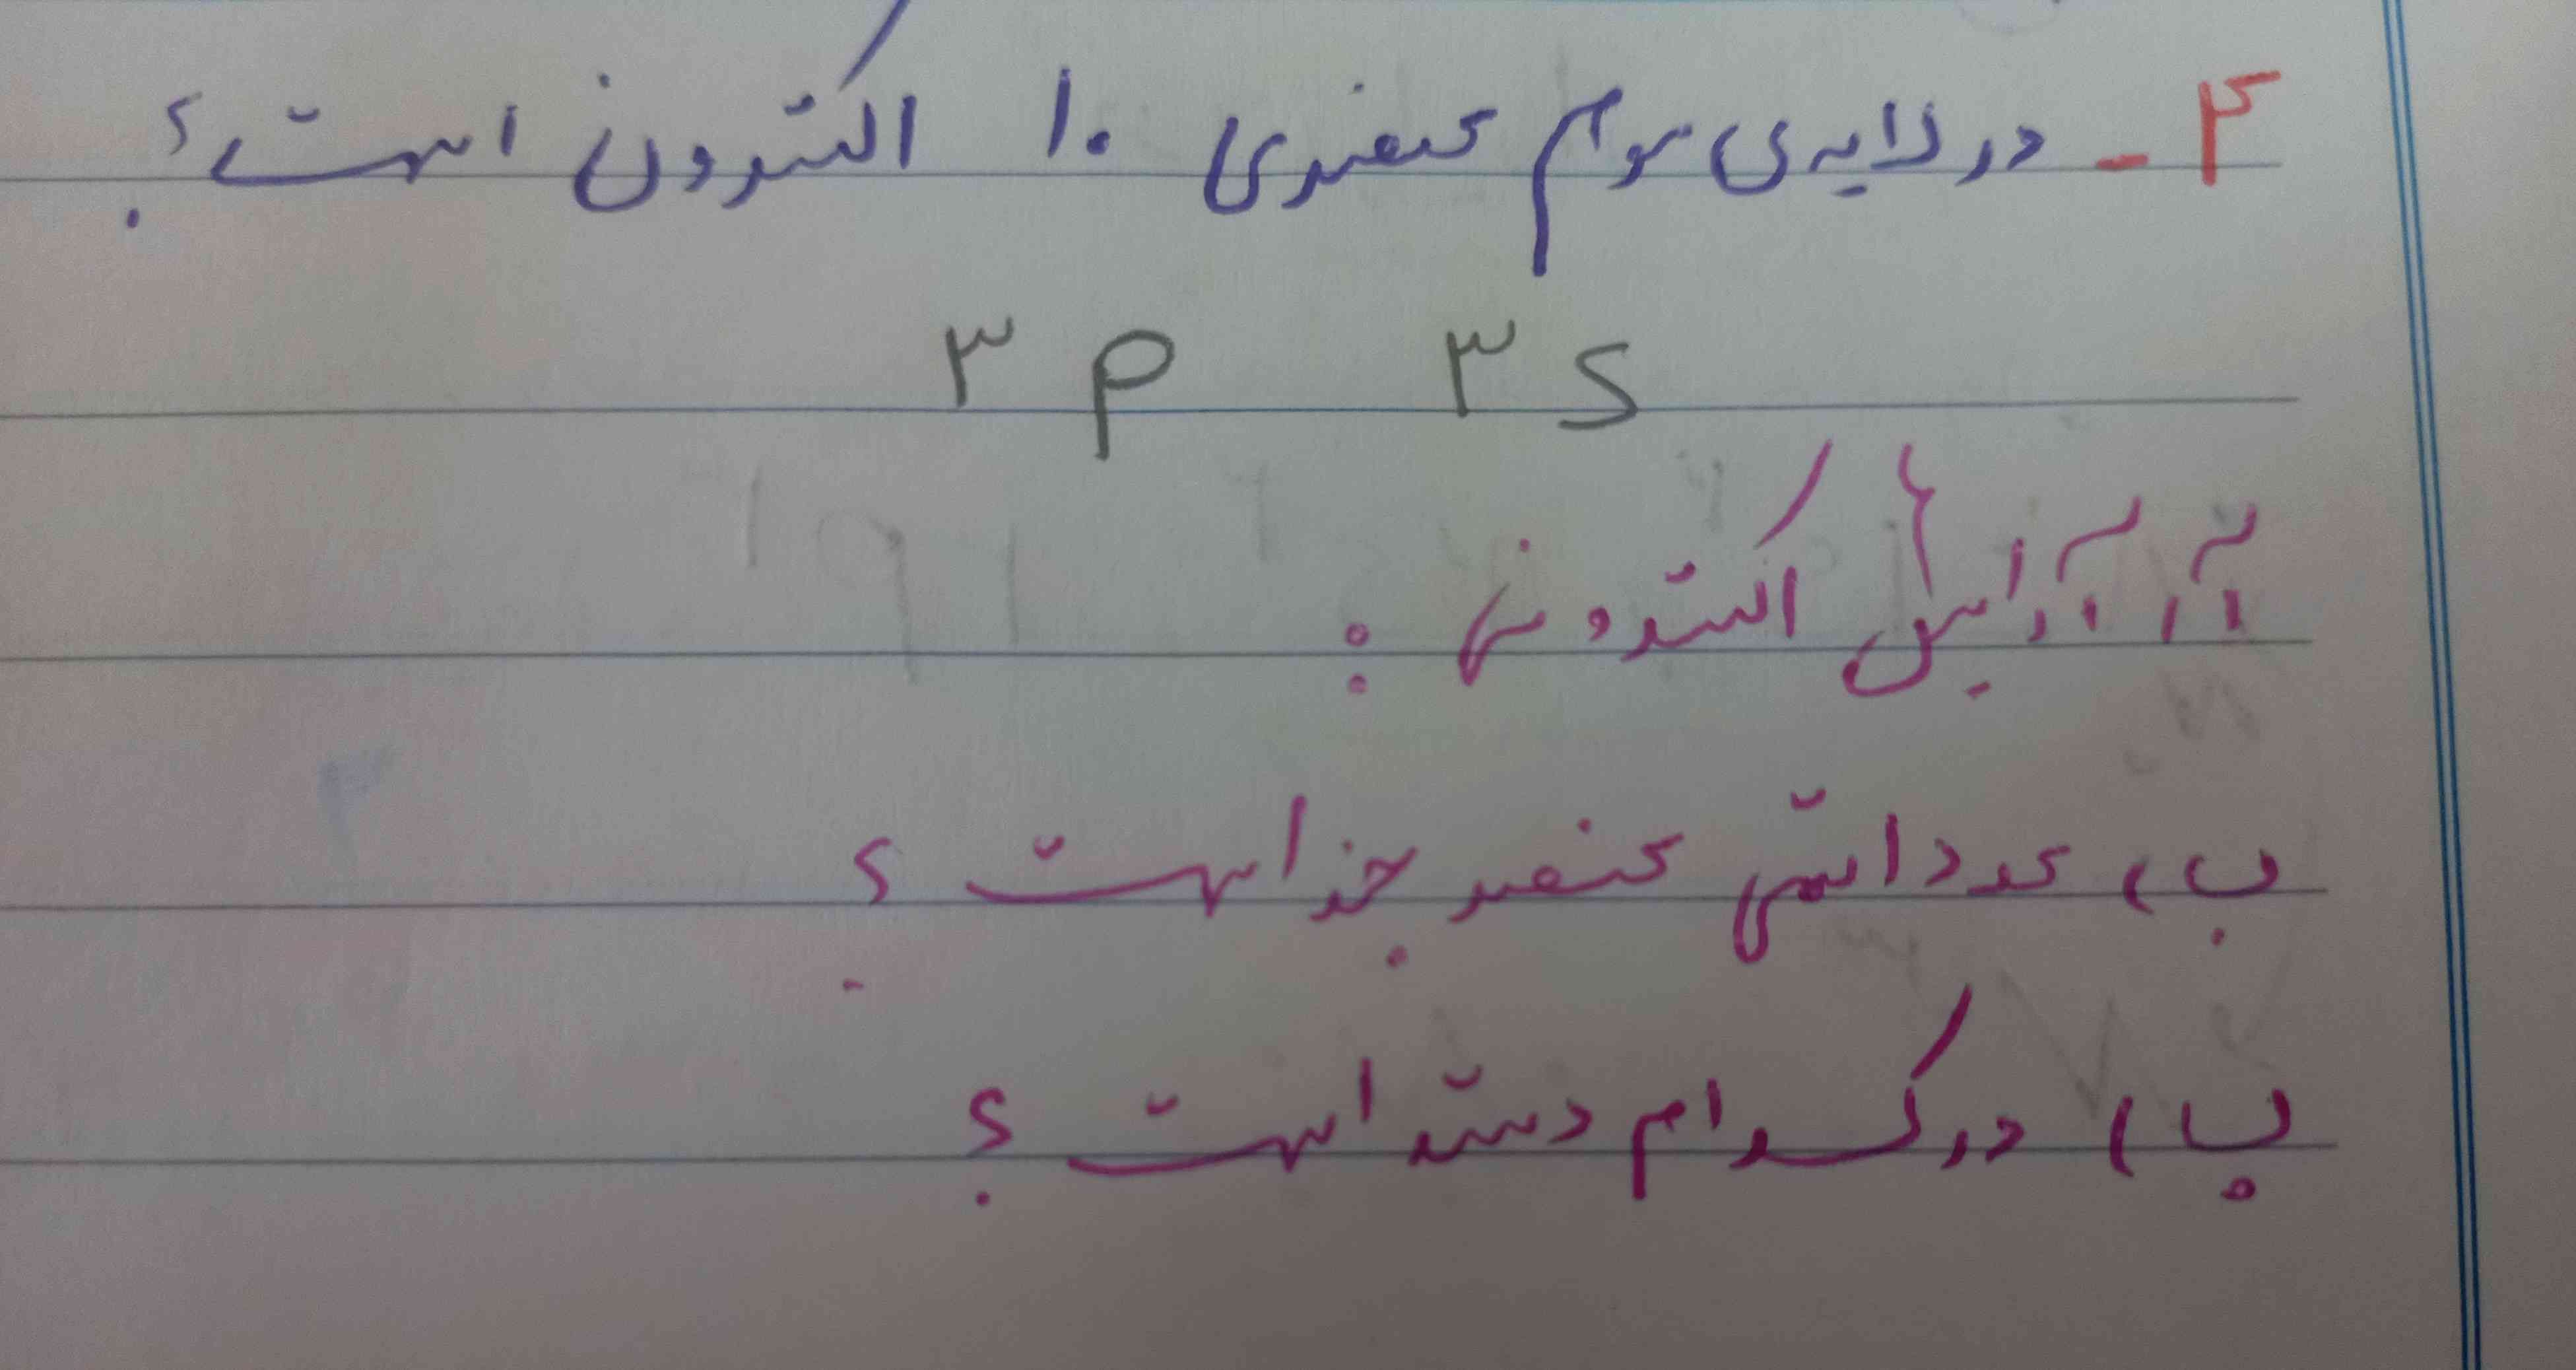 ۴- در لایه‌ی سوم عنصری ۱۰ الکترون است؟
۳s ۳p
آ، آرایش الکترونی:
ب، عدد اتمی عنصر چند است؟
پ، در کدام دسته است؟